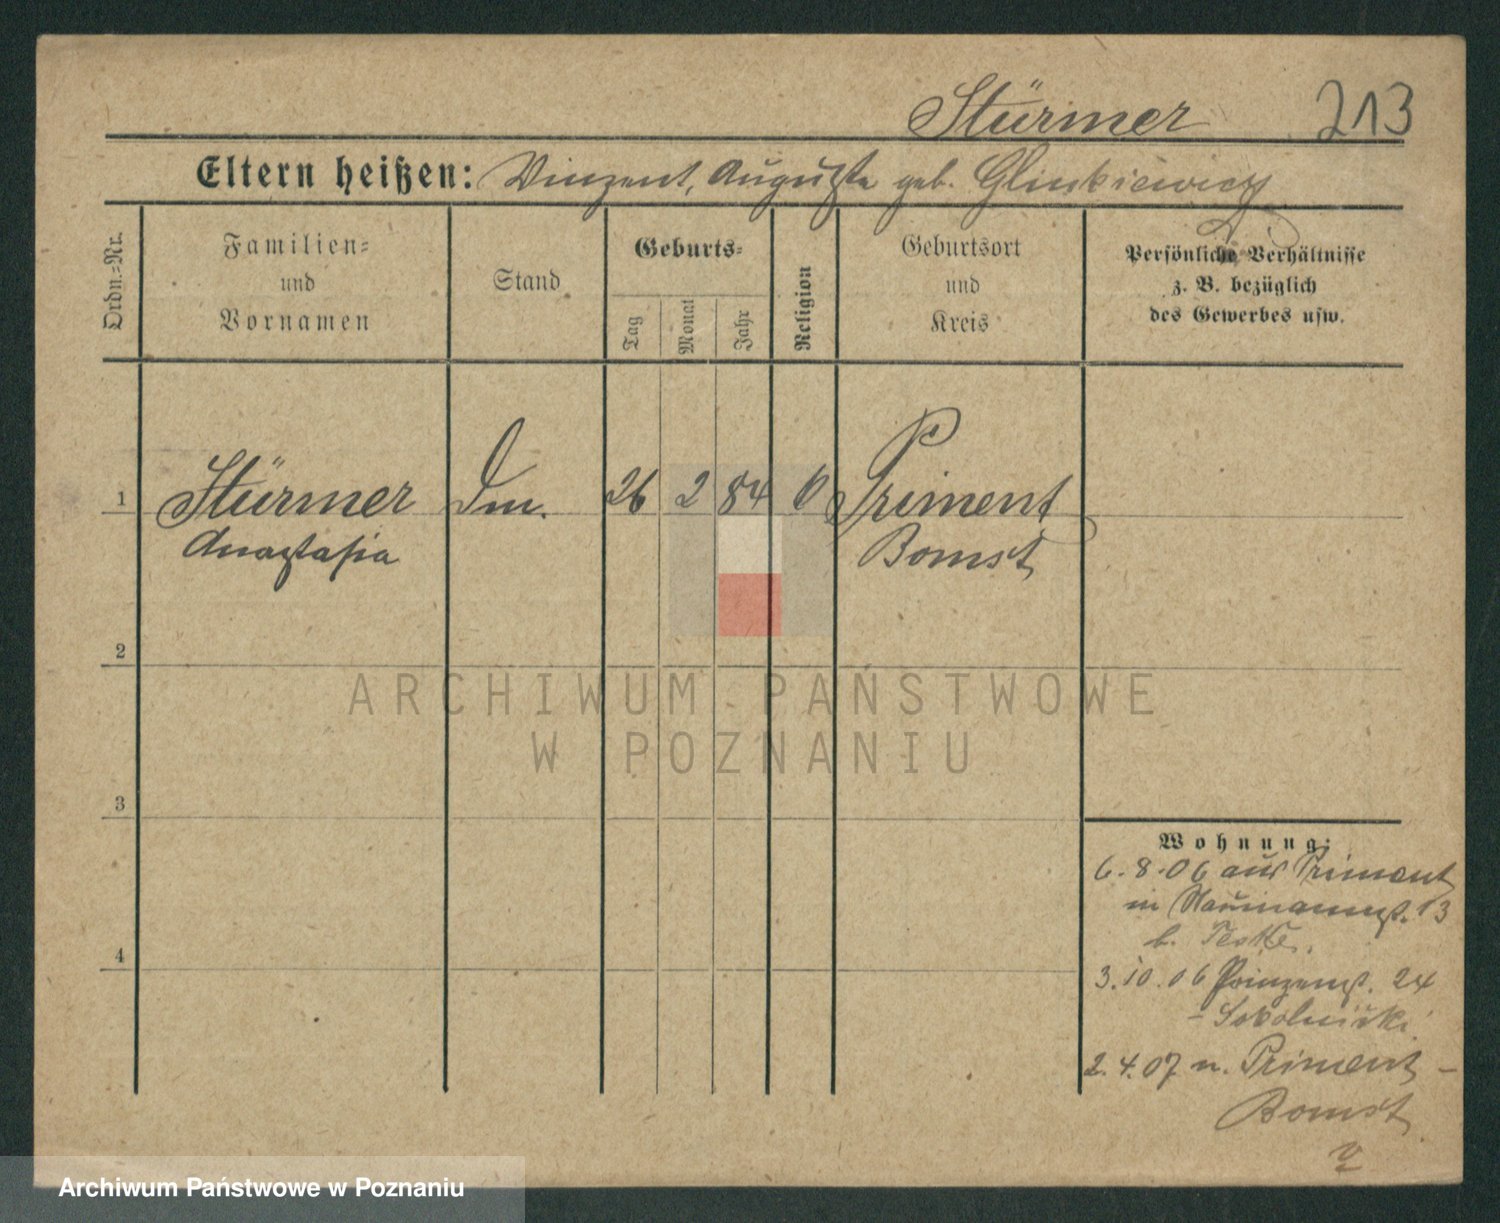 Stürmer 213
Eltern heißen: Vinzent, Auguste geb. Glinkiewicz
Ordn.=Nr.
Familien=
und
Vornamen
Stand
Geburts=
Tag
Monat
Jahr
Religion
Geburtsort
und
Kreis
Persönliche Verhältnisse
z. B. bezüglich
des Gewerbes usw.
1 Stürmer 26 2 84 Priment
Anastasia Bomst
2
3
4
Wohnung:
6.8.06 aus Priment
in Naumannst. 13
b.
3.10.06 Prinzenst. 24
- Sokolnicki
2.4.07 n. Priment -
Bomst
ARCHIWUM PAŃSTWOWE
W POZNANIU
Archiwum Państwowe w Poznaniu